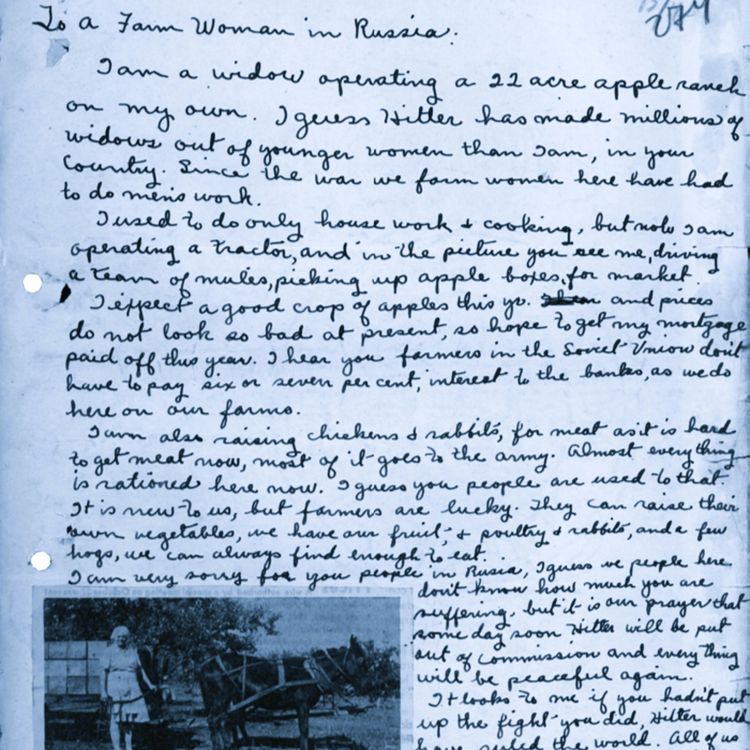 To a Farm Woman in Russia:
274
I am a widow operating a 22 acre apple ranch
on my own. I guess Hitler has made millions of
widows out of younger women than I am, in your
Country. Since the war we farm women here have had
to do mens work.
I used to do only house work & cooking, but now I am
operating a tractor, and in the picture you see me, driving
a team of mules, picking up apple boxes, for market.
I expect a good crop of apples this yr. and prices
do not look so bad at present, so hope to get my mortgage
paid off this year. I hear you farmers in the Soviet Union don't
have to pay six or seven per cent, interest to the banks, as we do
here on our farms.
I am also raising chickens & rabbits, for meat as it is hard
to get meat now, most of it goes to the army. Almost everything
is rationed here now. I guess you people are used to that.
It is new to us, but farmers are lucky. They can raise their
own vegetables, we have our fruit, & poultry & rabbits, and a few
hogs, we can always find enough to eat.
I am very sorry for you people in Rusia, I guess we people here
don't know how much you are
suffering, but it is our prayer that
some day soon Hitler will be put
out of commission and everything
will be peaceful again.
It looks to me if you hadn't put
up the fight you did, Hitler would
have ruled the world. All of us